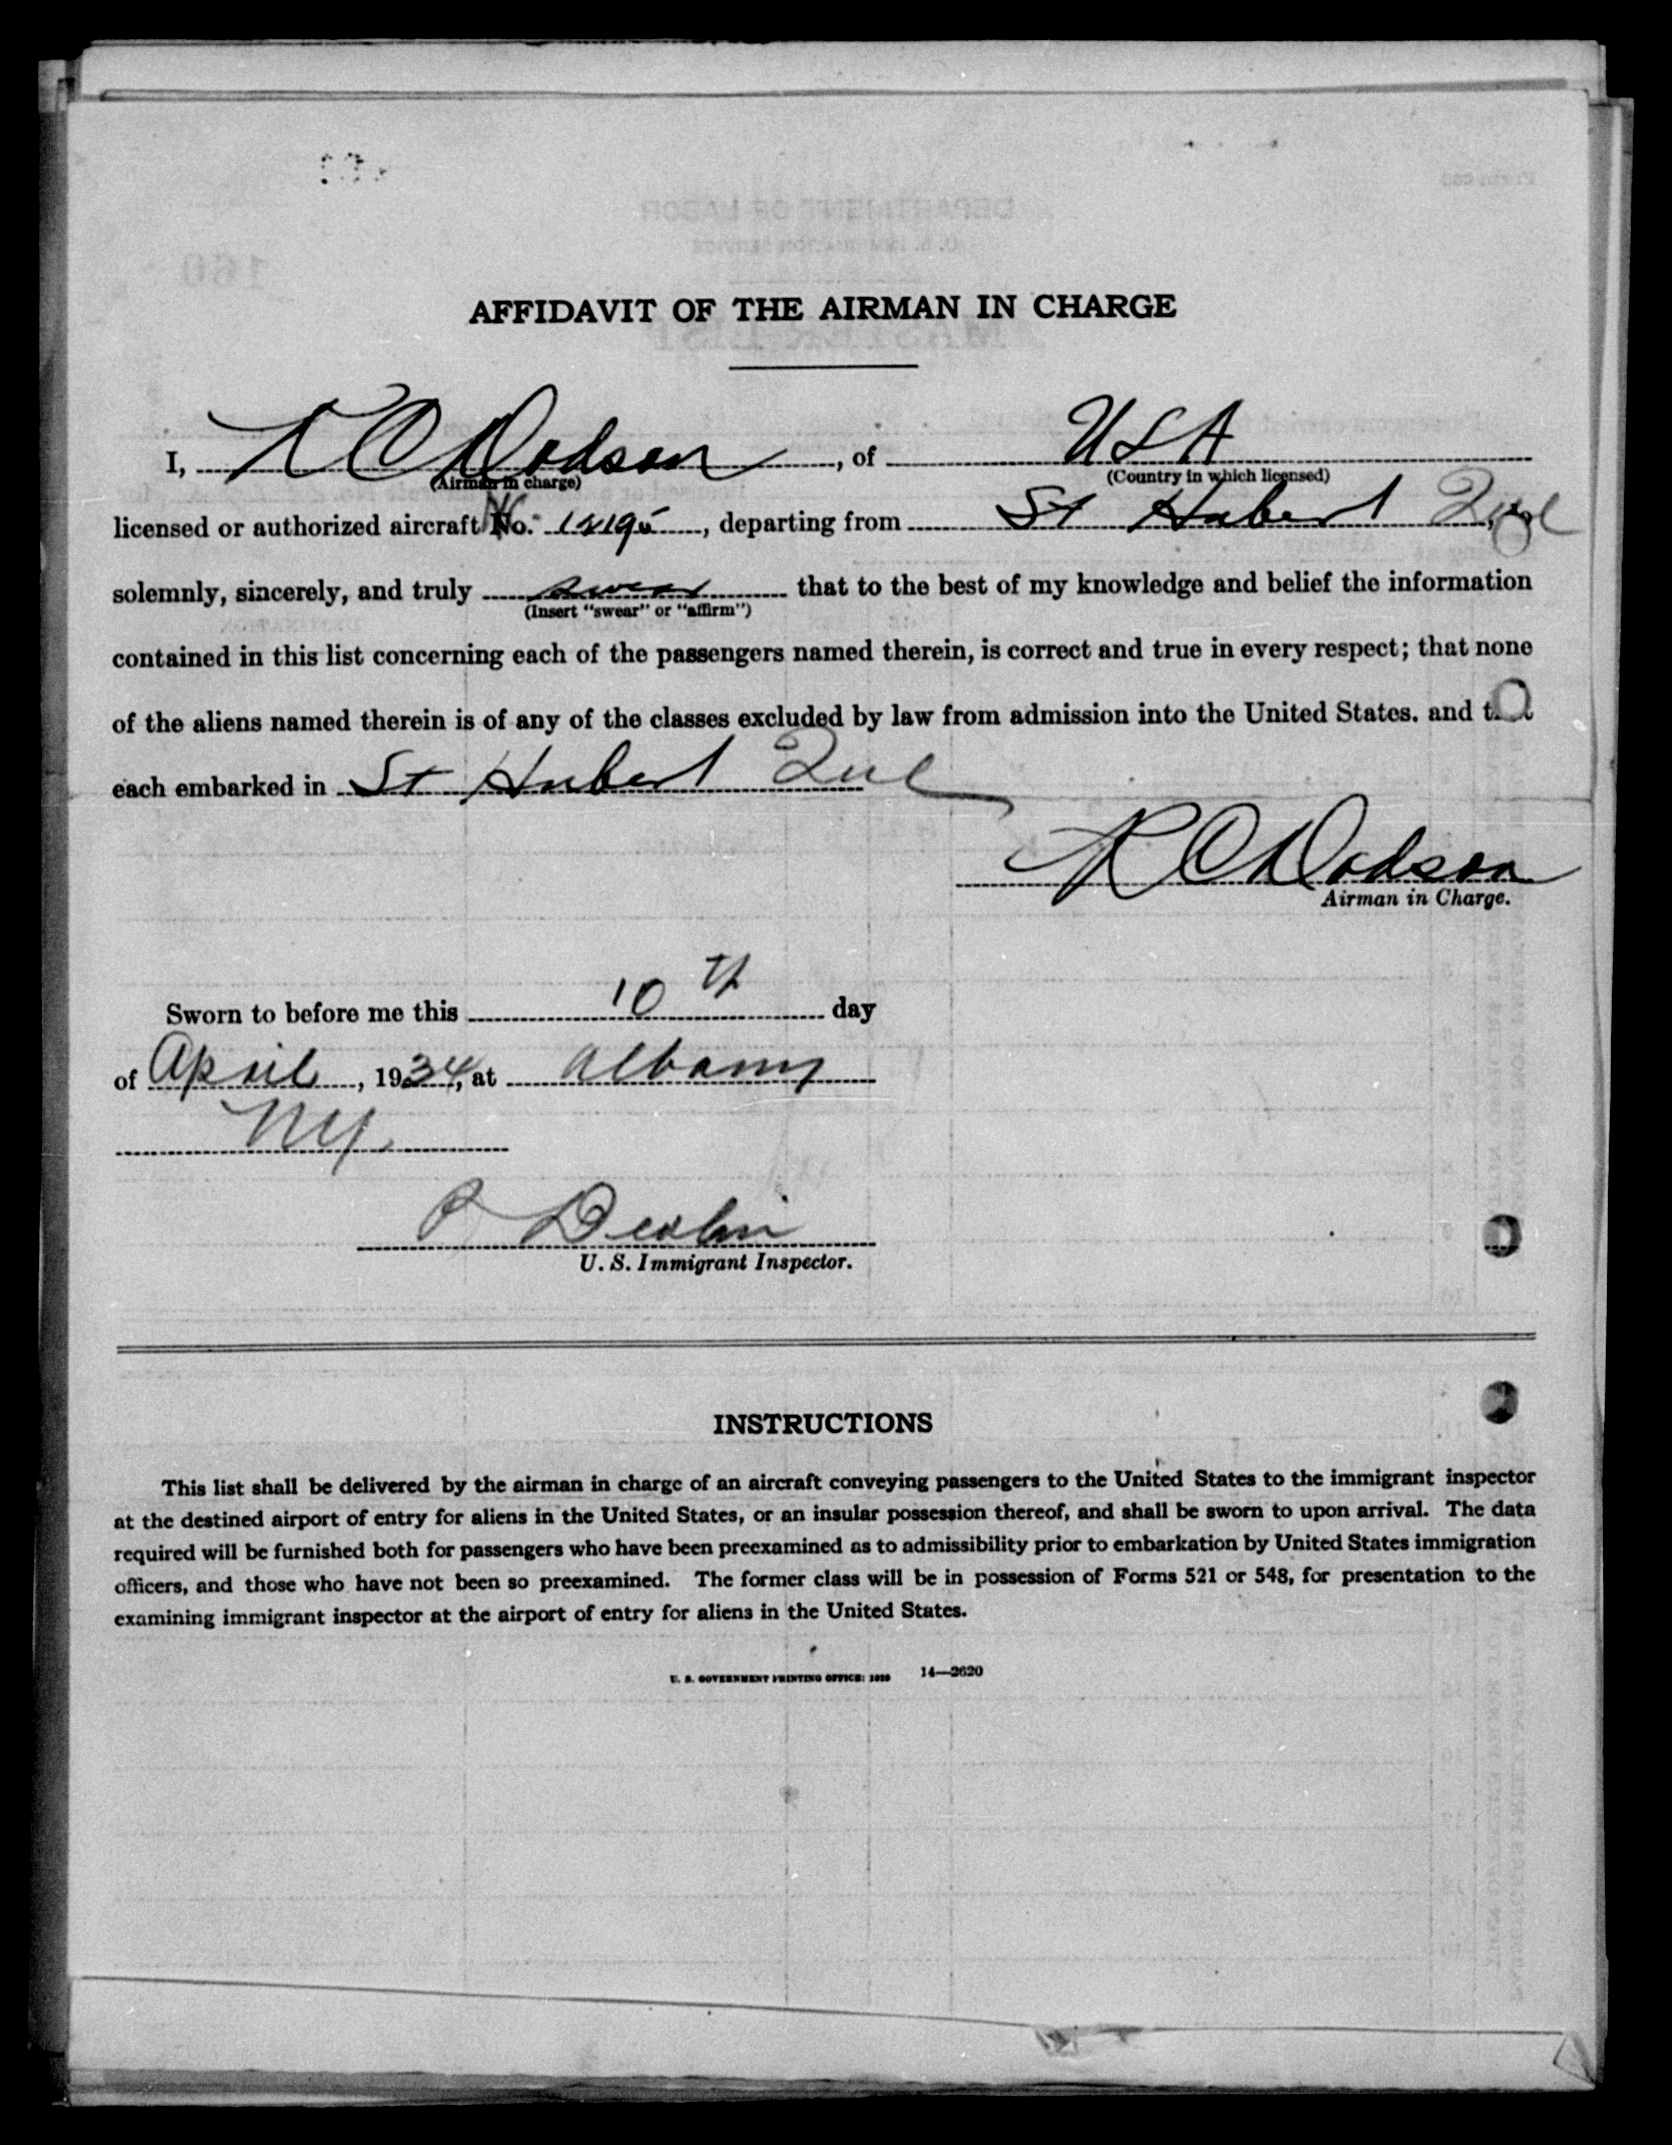 AFFIDAVIT OF THE AIRMAN IN CHARGE
I, R C Dodson, of USA
(Airman in charge) (Country in which licensed)
licensed or authorized aircraft No. , departing from St Hubert Que
solemnly, sincerely, and truly swear that to the best of my knowledge and belief the information
(Insert "swear" or "affirm")
contained in this list concerning each of the passengers named therein, is correct and true in every respect; that none
of the aliens named therein is of any of the classes excluded by law from admission into the United States. and that
each embarked in St Hubert Que
R C Dodson
Airman in Charge.
Sworn to before me this 10th day
of April, 1934, at Albany
NY
Devlin
U. S. Immigrant Inspector.
INSTRUCTIONS
This list shall be delivered by the airman in charge of an aircraft conveying passengers to the United States to the immigrant inspector
at the destined airport of entry for aliens in the United States, or an insular possession thereof, and shall be sworn to upon arrival. The data
required will be furnished both for passengers who have been preexamined as to admissibility prior to embarkation by United States immigration
officers, and those who have not been so preexamined. The former class will be in possession of Forms 521 or 548, for presentation to the
examining immigrant inspector at the airport of entry for aliens in the United States.
U. S. GOVERNMENT PRINTING OFFICE: 14—2620